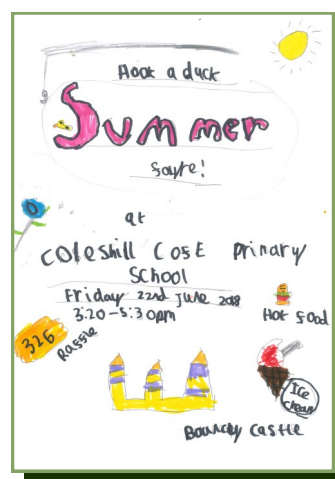 Hook a duck
Summer
Sayre!
at
Coleshill CosE Primary
School
Friday 22nd June 2018
3:20-5:30pm
Hot food
326
Rassle
Ice
Cream
Bouncy castle